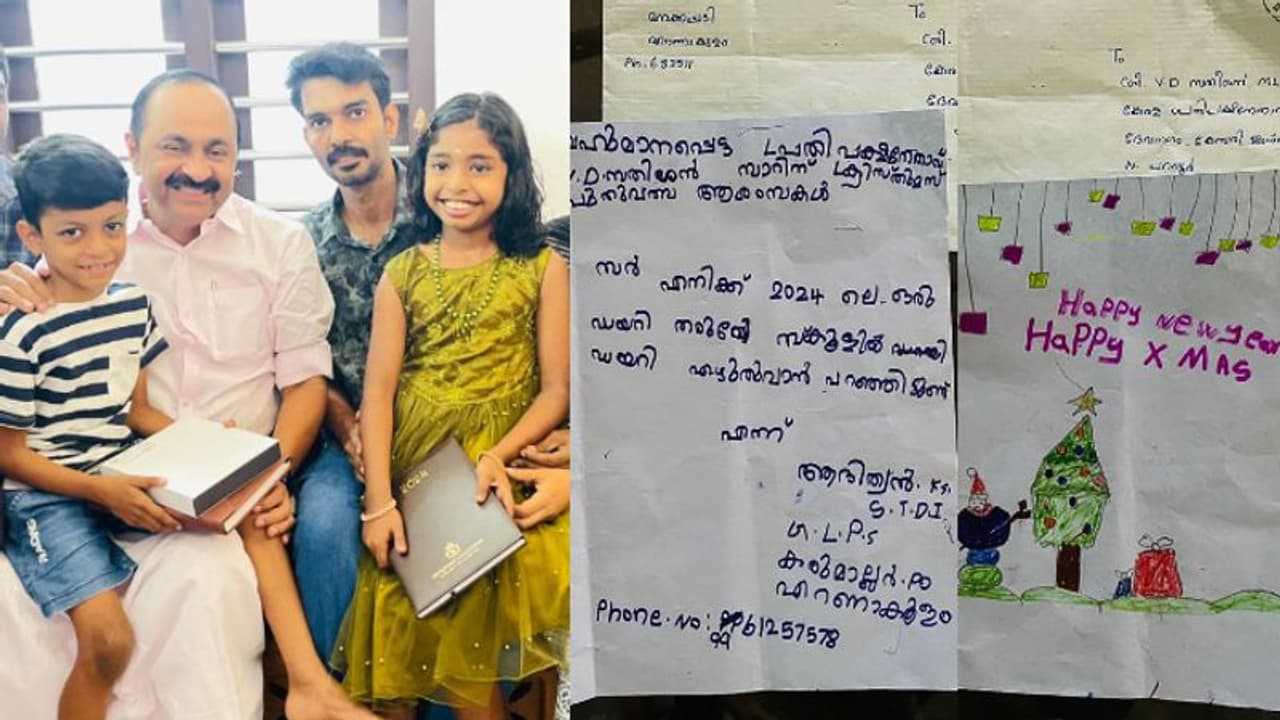 2024
എറണാകുളം
To
To
ശ്രീ. V.D സതീശൻ
N. പറവൂർ
ബഹുമാനപ്പെട്ട പ്രതിപക്ഷനേതാവ്
V.D. സതീശൻ സാറിന് ക്രിസ്തുമസ്
പുതുവത്സര ആശംസകൾ
സർ എനിക്ക് 2024 ലെ ഒരു
ഡയറി തരുമോ സ്കൂളിൽ
ഡയറി എഴുതുവാൻ പറഞ്ഞിട്ടുണ്ട്
എന്ന്
ആദിത്യൻ. K.S.
S.T.D.I
G.L.P.S
കരുമാല്ലൂർ. PO
എറണാകുളം
Phone.No:
Happy New year
Happy XMAS